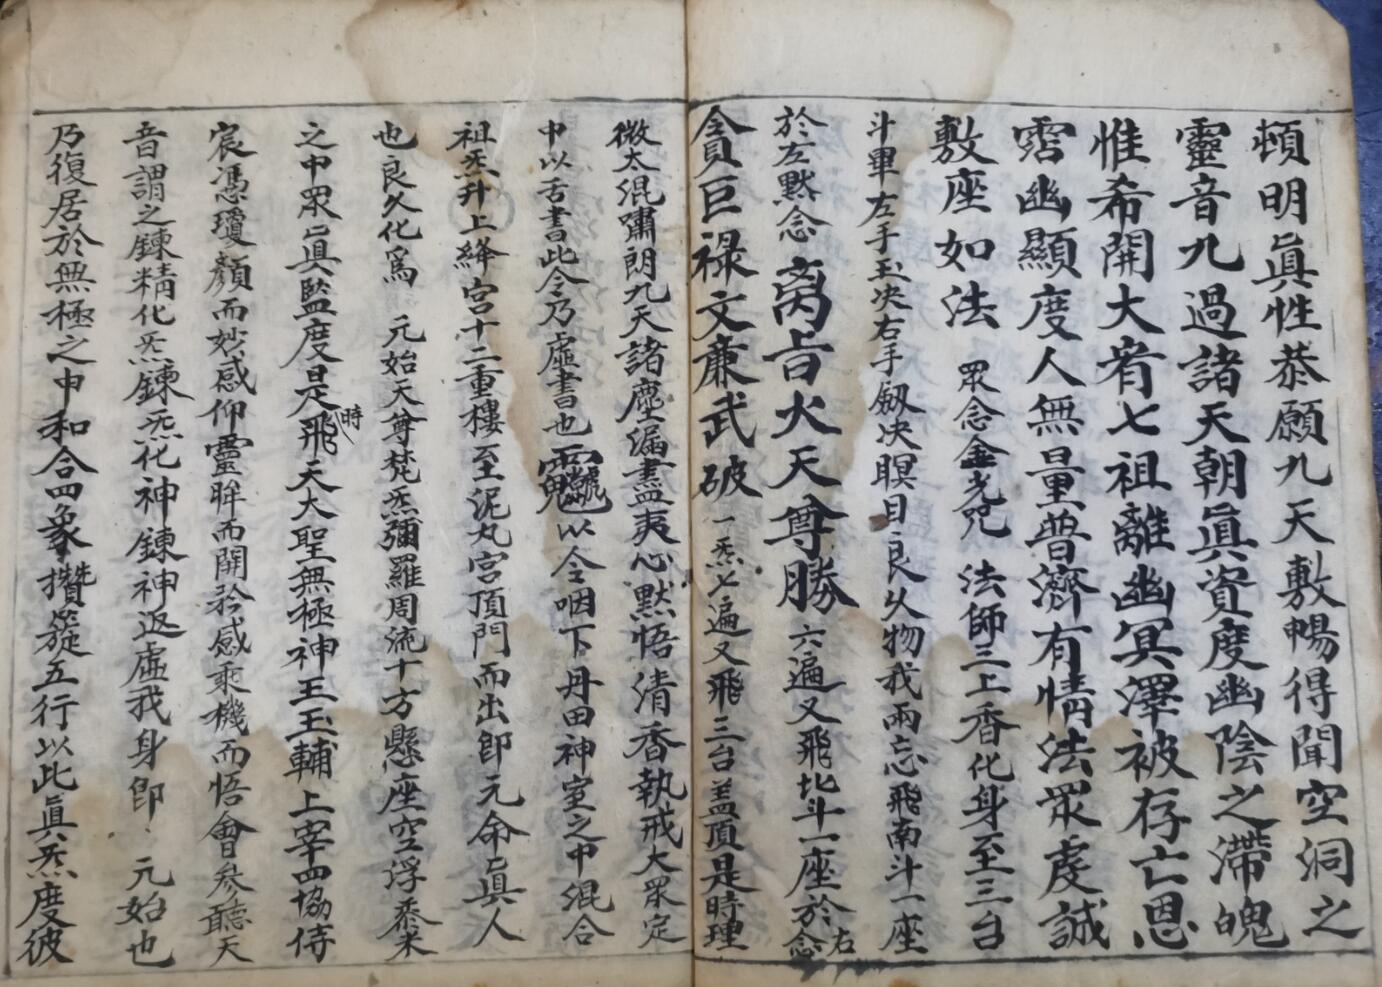 頓明眞性恭願九天敷暢得聞空洞之
靈音九過諸天朝眞資度幽陰之滯魄
惟希開大宥七祖離幽冥澤被存亡恩
霑幽顯度人無量普濟有情法眾虔誠
敷座如法 眾念金光咒 法師三上香化身至三台
斗罡左手玉决右手劔决瞑目良久物我兩忘飛南斗一座
於左默念 火天尊勝 六遍又飛北斗一座於右念
貪巨祿文廉武破 一炁七遍又飛三台盖頂是時理
微太混嘯朗九天諸塵漏盡夷心默悟清香執戒大眾定
中以舌書此令乃虛書也 以令咽下丹田神室之中混合
祖炁升上絳宮十二重樓至泥丸宮頂門而出即元命眞人
也良久化爲 元始天尊梵炁彌羅周流十方懸座空浮黍米
之中眾眞監度是時飛天大聖無極神王玉輔上宰四協侍
宸憑瓊顏而妙感仰靈眸而開矜感乘機而悟會參聽天
音謂之鍊精化炁鍊炁化神鍊神返虛我身即 元始也
乃復居於無極之中和合四象攢簇五行以此眞炁度彼